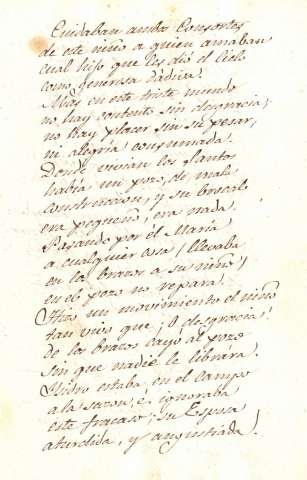 Cuidaban ambos Consortes
de este niño a quien amaban
cual hijo que les dió el Cielo
como generosa dadiva.
Mas en este triste mundo
no hay contento sin desgracia;
no hay placer sin su pesar,
ni alegria consumada.
Donde vivian los Santos
habia un pozo, de mala
construccion, y su brocal
era pequeño, era nada.
Pasando por él Maria
a cualquier cosa (llevaba
en los brazos a su niño)
en el pozo no repara.
Hizo un movimiento el niño
tan vivo que ¡o desgracia!
de los brazos cayó al pozo
sin que nadie le librara.
Isidro estaba, en el campo
a la sazon, é ignoraba
este fracaso; su Esposa
aturdida, y angustiada